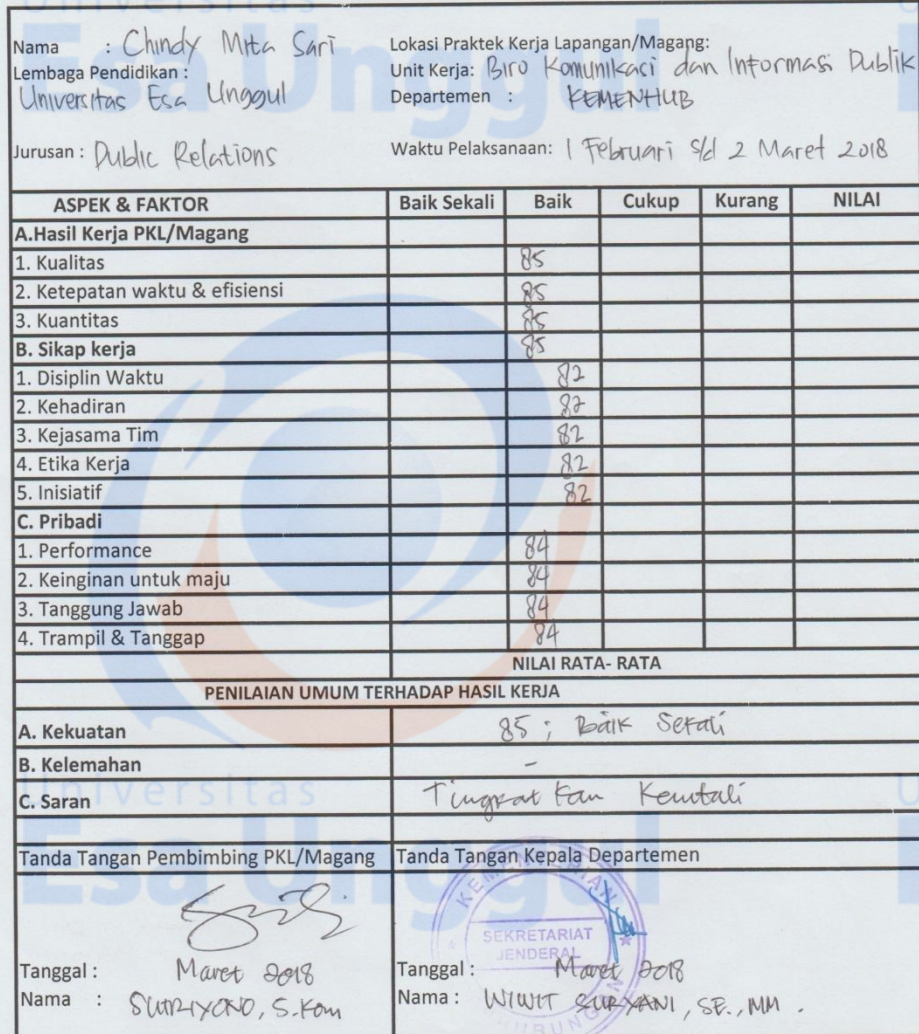 Universitas
Esa Unggul
Nama : Chindy Mita Sari
Lembaga Pendidikan :
Universitas Esa Unggul
Jurusan : Public Relations
Lokasi Praktek Kerja Lapangan/Magang:
Unit Kerja: Biro Komunikasi dan Informasi Publik
Departemen : KEMENHUB
Waktu Pelaksanaan: 1 Februari s/d 2 Maret 2018
ASPEK & FAKTOR Baik Sekali Baik Cukup Kurang NILAI
A.Hasil Kerja PKL/Magang
1. Kualitas 85
2. Ketepatan waktu & efisiensi 85
3. Kuantitas 85
B. Sikap kerja 85
1. Disiplin Waktu 82
2. Kehadiran 82
3. Kejasama Tim 82
4. Etika Kerja 82
5. Inisiatif 82
C. Pribadi
1. Performance 84
2. Keinginan untuk maju 84
3. Tanggung Jawab 84
4. Trampil & Tanggap 84
NILAI RATA- RATA
PENILAIAN UMUM TERHADAP HASIL KERJA
A. Kekuatan 85 ; Baik Sekali
B. Kelemahan -
Universitas
C. Saran Tingkat kan Kembali
Esa Unggul
Tanda Tangan Pembimbing PKL/Magang Tanda Tangan Kepala Departemen
KEMENTERIAN
SEKRETARIAT
JENDERAL
HUBUNGAN
Tanggal : Maret 2018
Nama : SURIYONO, S.Kom
Tanggal : Maret 2018
Nama : WIWIT SURYANI, SE., MM .